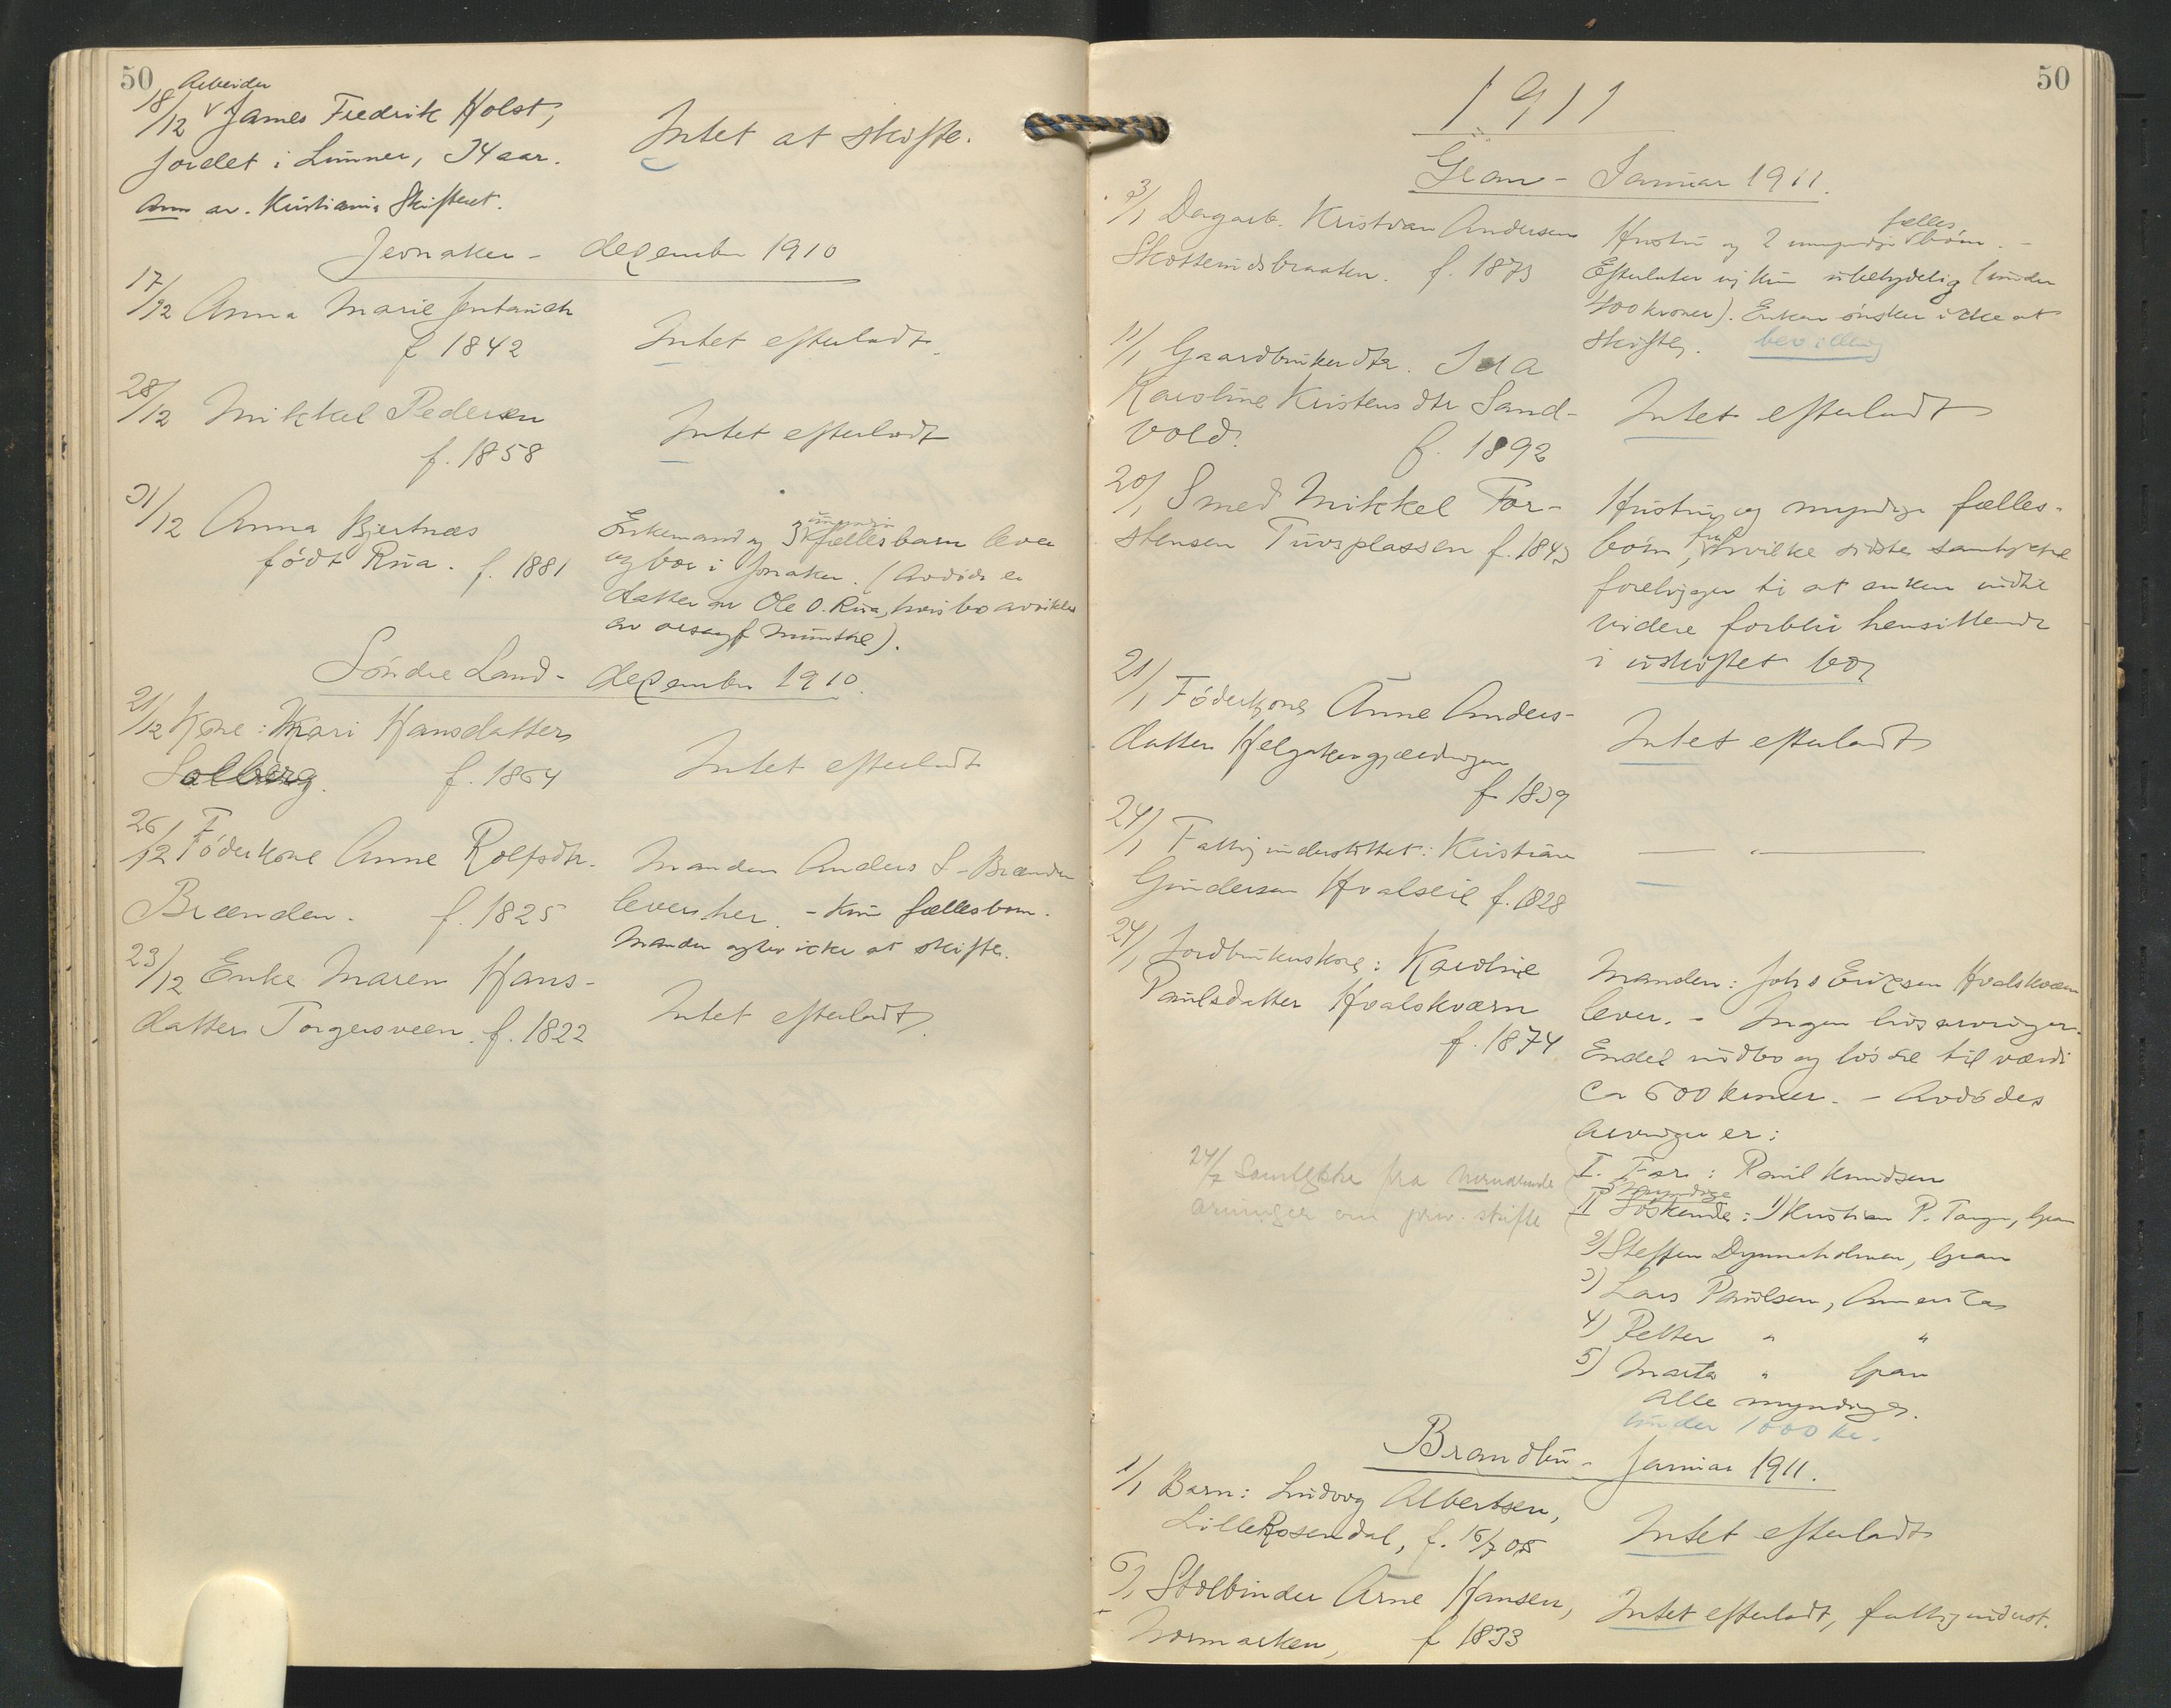 50
Arbeider
18/12 James Fredrik Holst,
Jordet i Lunner, 34 aar.
Anm av. Kristiania Skifteret.
Intet at skifte.
Jevnaker - dezember 1910
17/12 Anna Marie
f 1842
Intet efterladt.
28/12 Mikkel Pedersen
f. 1858
Intet efterladt
31/12 Anna Bjertnæs
født Rua. f. 1881
Enkemand og 3 umyndige fællesbarn lever
og bor i Jevnaker. (Avdøde er
datter av Ole O. Rua, hvis bo
av Munthe).
Søndre Land - dezember 1910.
21/12 Kone: Mari Hansdatter
Solberg. f. 1864
Intet efterladt
26/12 Føderkone Anne Rolfsdtr.
Brænden. f. 1825
Manden Anders L. Brænden
lever her. - Kun fællesbarn.
Manden agter ikke at skifte.
23/12 Enke Maren Hans-
datter Torgersveen. f. 1822
Intet efterladt.
50
1911
Gran - Januar 1911.
3/1 Dagarb. Kristian Andersen
f. 1873
Hustru og 2 umyndige fælles børn. -
Efterlater sig kun ubetydelig (under
400 kroner). Enken ønsker ikke at
skifte. bevilling
11/1 Gaardbrukerdtr. Ida
Karoline Kristensdtr Sand-
vold. f. 1892
Intet efterladt
20/1 Smed Mikkel Tor-
stensen Tuvsplassen f. 1843
Hustru og myndige fælles-
børn, fra hvilke sidste samtykke
foreligger ti at enken indtil
videre forblir hensittende
i uskiftet bo,
21/1 Føderkone Anne Anders-
datter Helgakergjærdingen
f. 1839
Intet efterladt
24/1 Fattigunderstøttet: Kristian
Gundersen Hvalseie f. 1828
— " —
24/1 Jordbrukerskone: Karoline
Paulsdatter Hvalskværn
f. 1874
Manden: Johs Eriksen Hvalskværn
lever. - Ingen livsarvinger.
Endel indbo og løsøre til værdi
ca 600 kroner. - Avdødes
arvinger er:
I. Far: Paul Knudsen
5 myndige
II Søskende: 1) Kristian P. Tangen, Gran
2) Steffen Dynnaholmen, Gran
3) Lars Paulsen, Amerika
4) Petter " "
5) Marta " Gran
Alle myndige.
under 1000 kr.
24/2 Samtykke fra nærværende
arvinger om priv. skifte
Brandbu - Januar 1911.
1/1 Barn: Ludvig Albertsen,
Lille Rosendal, f. 16/7 08
Intet efterladt
6/1 Stolbinder Arne Hansen,
Normarken, f 1833
Intet efterladt, fattigunderst.